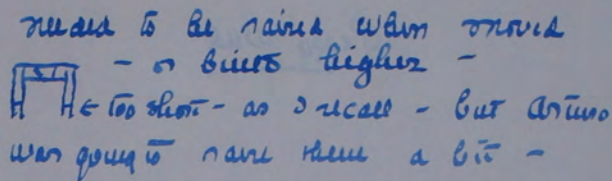 needed to be raised when moved
- or built higher -
← too short - as I recall - but Arturo
was going to raise them a bit -